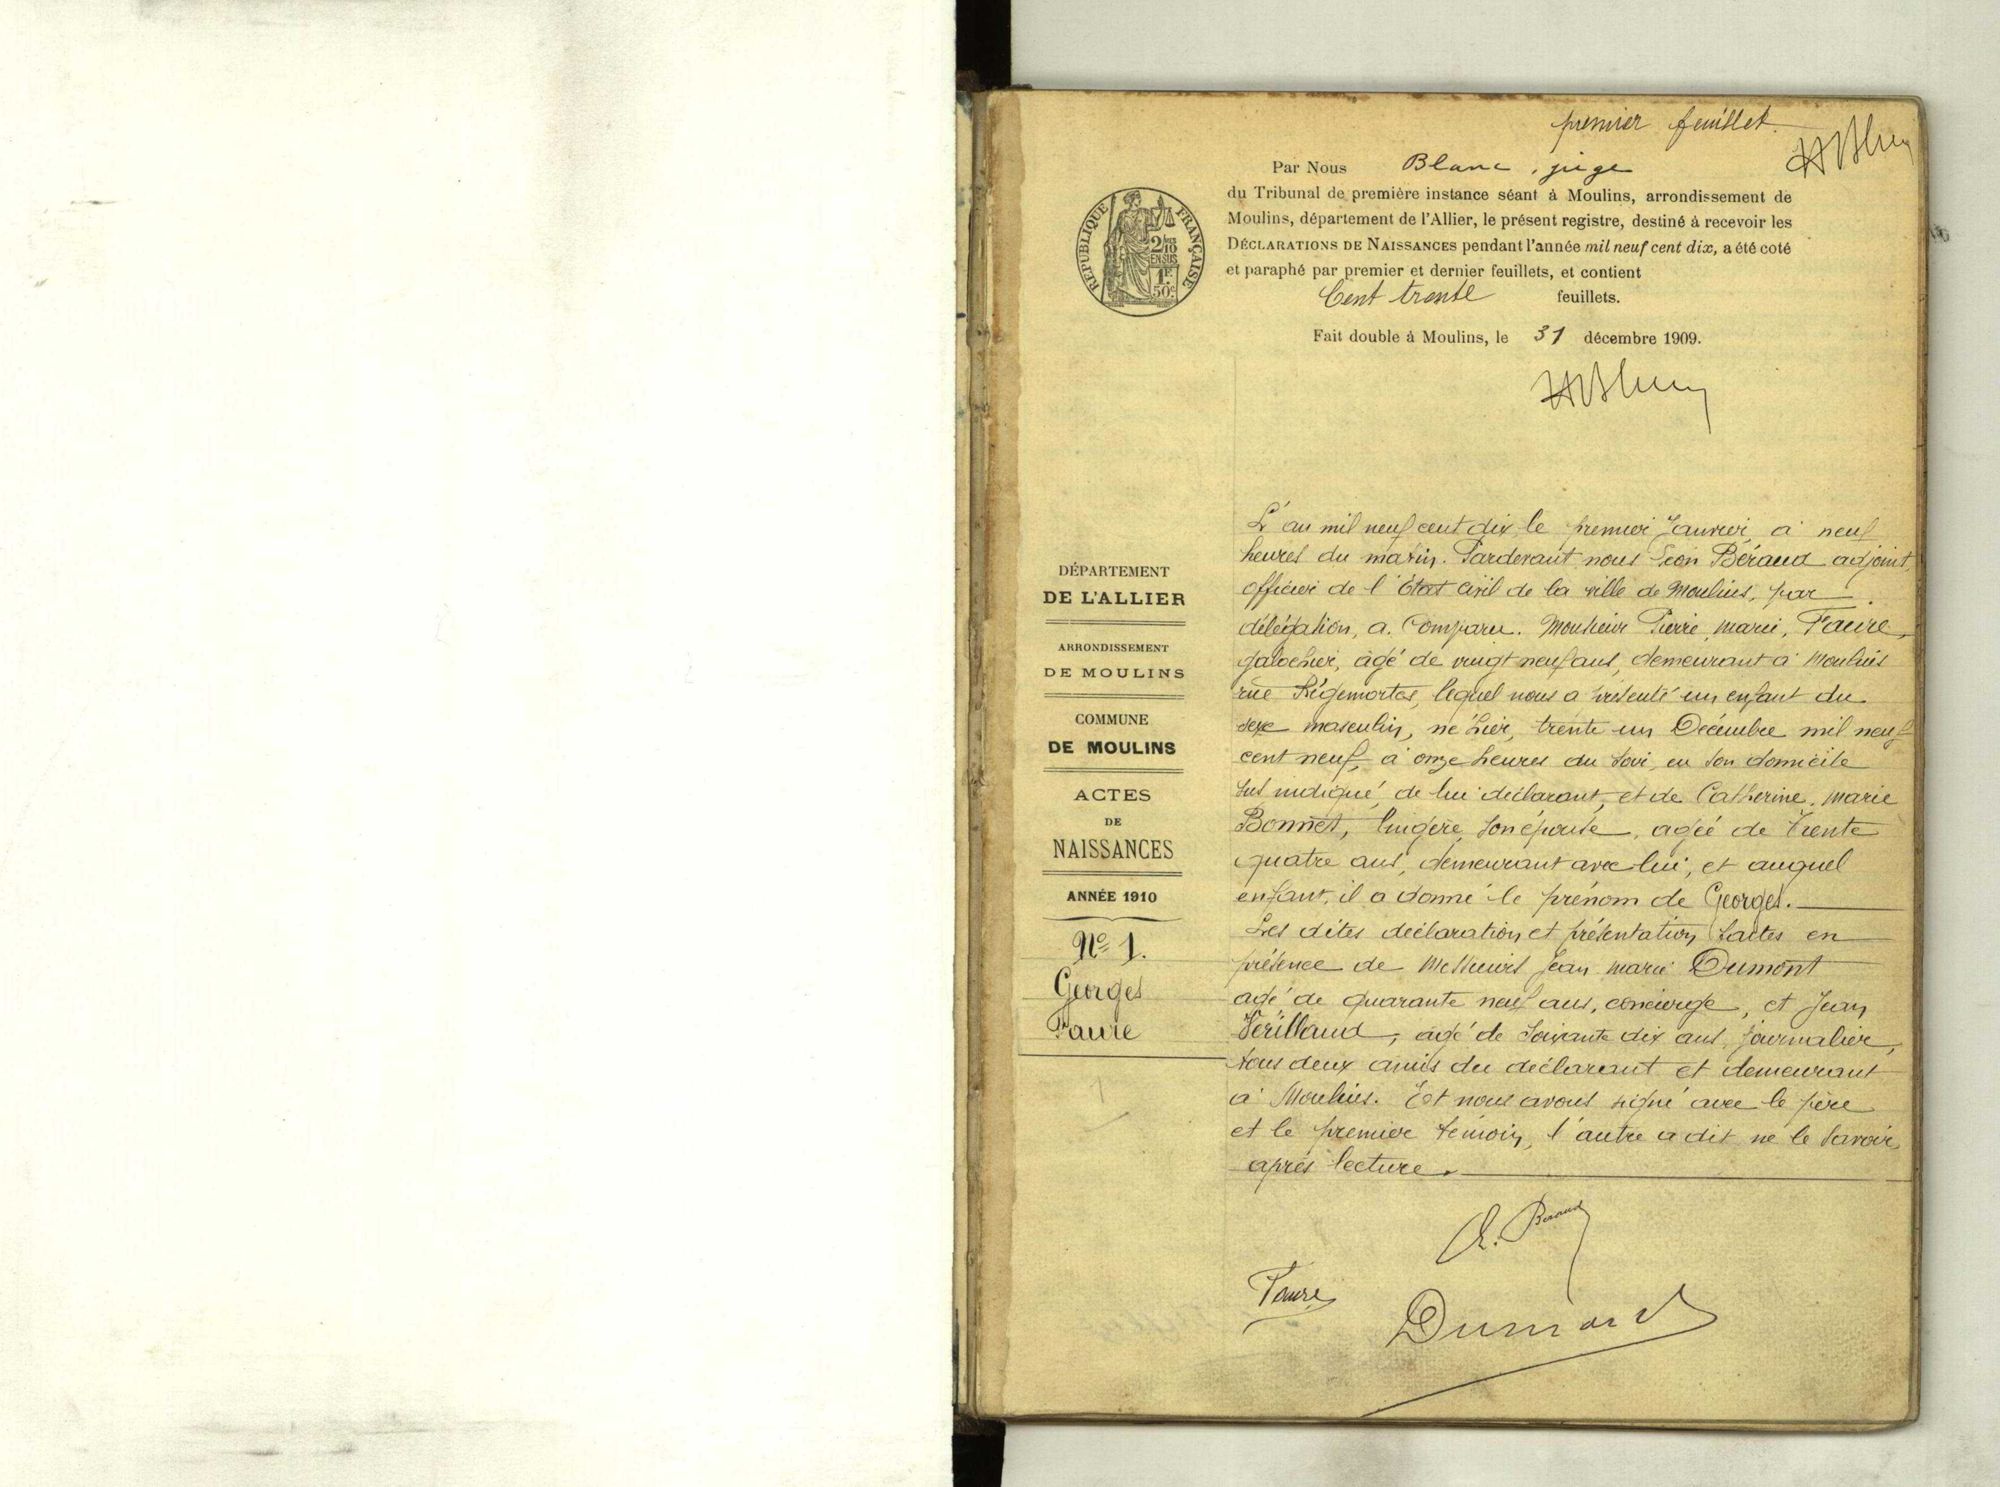 premier feuillet.
Par Nous Blanc, juge
du Tribunal de première instance séant à Moulins, arrondissement de
Moulins, département de l'Allier, le présent registre, destiné à recevoir les
DÉCLARATIONS DE NAISSANCES pendant l'année mil neuf cent dix, a été coté
et paraphé par premier et dernier feuillets, et contient
Cent trente feuillets.
Fait double à Moulins, le 31 décembre 1909.
RÉPUBLIQUE FRANÇAISE
2/10
EN SUS
1F
50c
DÉPARTEMENT
DE L'ALLIER
ARRONDISSEMENT
DE MOULINS
COMMUNE
DE MOULINS
ACTES
DE
NAISSANCES
ANNÉE 1910
No 1.
Georges
Faure
L'an mil neuf cent dix, le premier Janvier, à neuf
heures du matin. Pardevant nous Léon Béraud adjoint,
officier de l'État civil de la ville de Moulins, par
délégation, a comparu. Monsieur Pierre, marie, Faure,
galochier, âgé de vingt neuf ans, demeurant à Moulins
rue Régemortes, lequel nous a présenté un enfant du
sexe masculin, né hier, trente un Décembre mil neuf
cent neuf, à onze heures du soir, en son domicile
sus indiqué, de lui déclarant, et de Catherine, marie
Bonnet, lingère, son épouse, agée de trente
quatre ans, demeurant avec lui, et auquel
enfant, il a donné le prénom de Georges.
Les dites déclaration et présentation faites en
présence de Messieurs Jean marie Dumont
agé de quarante neuf ans, concierge, et Jean
Vérillaud, âgé de soixante dix ans, journalier,
tous deux amis du déclarant et demeurant
à Moulins. Et nous avons signé avec le père
et le premier témoin, l'autre a dit ne le savoir,
après lecture.
L. Beraud
Faure
Dumont